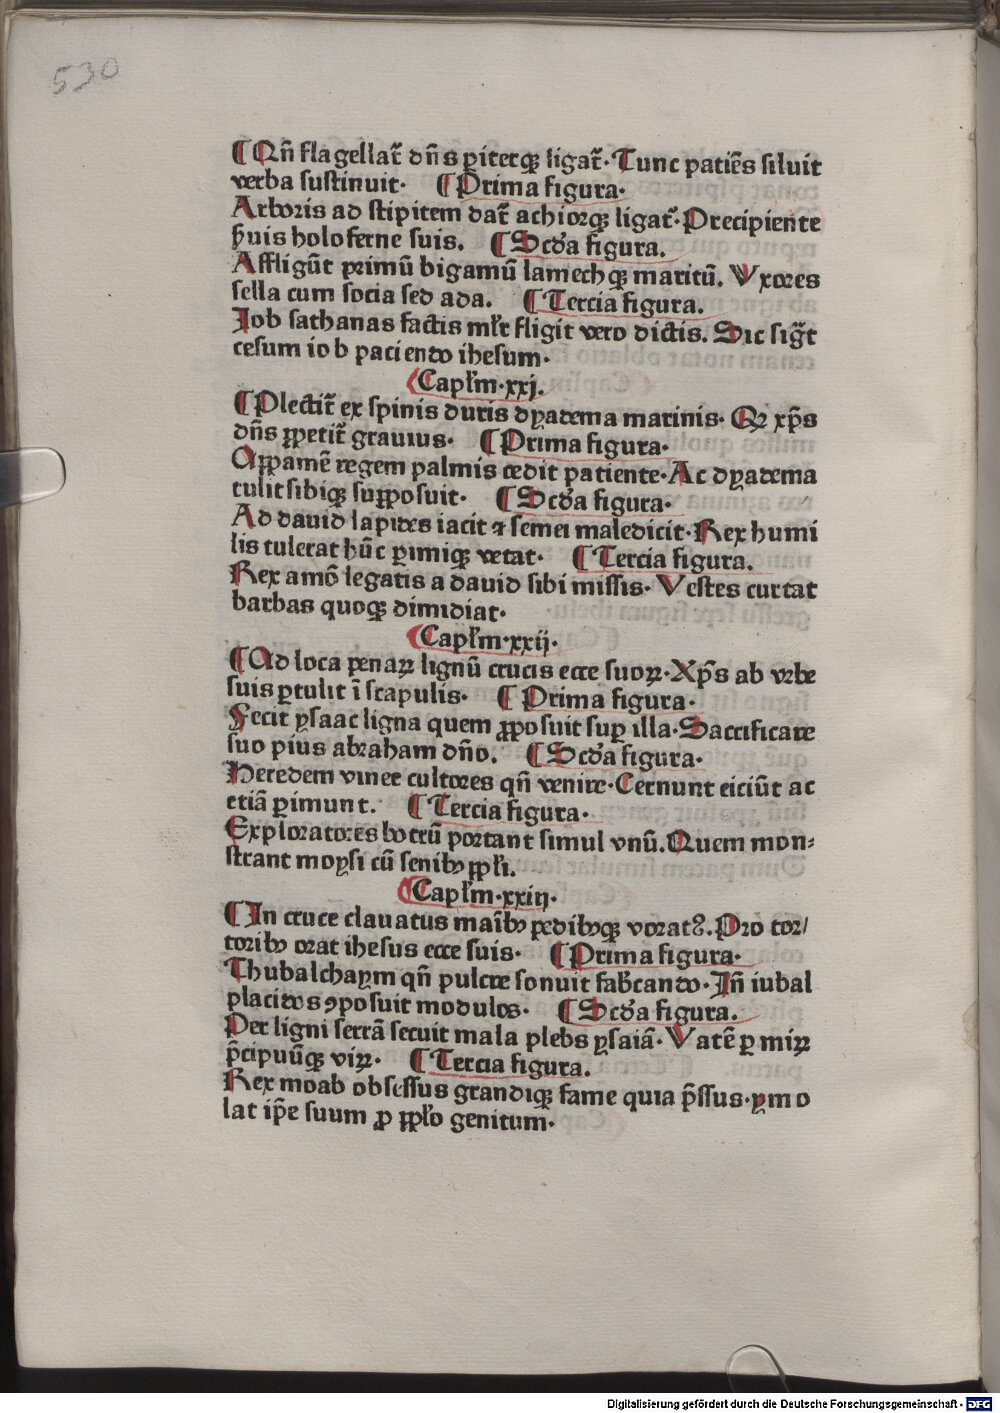 530
¶ Qn̄ flagellat̄ dn̄s p̱iterq̄ʒ ligat̄. Tunc patiēs siluit
verba sustinuit. ¶ Prima figura.
Arboris ad stipitem dat̄ achiorqʒ ligat̄. Precipiente
huis holoferne suis. ¶ Scd̄a figura.
Affligūt primū bigamū lamechqʒ maritū. Vxores
sella cum socia sed ada. ¶ Tercia figura.
Iob sathanas factis ml̄r fligit vero dictis. Sic sigt̄
cesum iob paciendo ihesum.
¶ Capl̄m. xxj.
¶ Plectit̄ ex spinis duris dyadema marinis. Qꝫ xp̄s
dn̄s ꝓpetit̄ grauius. ¶ Prima figura.
Appamē regem palmis cedit patiente. Ac dyadema
tulit sibiqʒ supposuit. ¶ Scd̄a figura.
Ad dauid lapides iacit ⁊ semei maledicit. Rex humi
lis tulerat hūc ꝑimiqʒ vetat. ¶ Tercia figura.
Rex amō legatis a dauid sibi missis. Vestes curtat
barbas quoqʒ dimidiat.
¶ Capl̄m. xxij.
¶ Ad loca penaꝝ lignū crucis ecce suoꝝ. Xp̄s ab vrbe
suis ꝑtulit ī scapulis. ¶ Prima figura.
Fecit ysaac ligna quem ꝓposuit suꝑ illa. Sacrificare
suo pius abraham dn̄o. ¶ Scd̄a figura.
Heredem vinee cultores qn̄ venire. Cernunt eiciūt ac
etiā ꝑimunt. ¶ Tercia figura.
Exploratores botrū portant simul vnū. Quem mon⸗
strant moysi cū senibꝫ ppl̄i.
¶ Capl̄m. xxiij.
¶ In cruce clauatus manibꝫ pedibꝫqʒ vorat᷑. Pro tor/
toribꝫ orat ihesus ecce suis. ¶ Prima figura.
Thubalchaym qn̄ pulcre sonuit fab̄cando. In̄ iubal
placidos ꝯposuit modulos. ¶ Scd̄a figura.
Per ligni serrā secuit mala plebs ysaiā. Vatē ꝑ miꝝ
p̄cipuūqʒ viꝝ. ¶ Tercia figura.
Rex moab obsessus grandiqʒ fame quia p̄ssus. ymo
lat ip̄e suum ꝓ ppl̄o genitum.
Digitalisierung gefördert durch die Deutsche Forschungsgemeinschaft - DFG